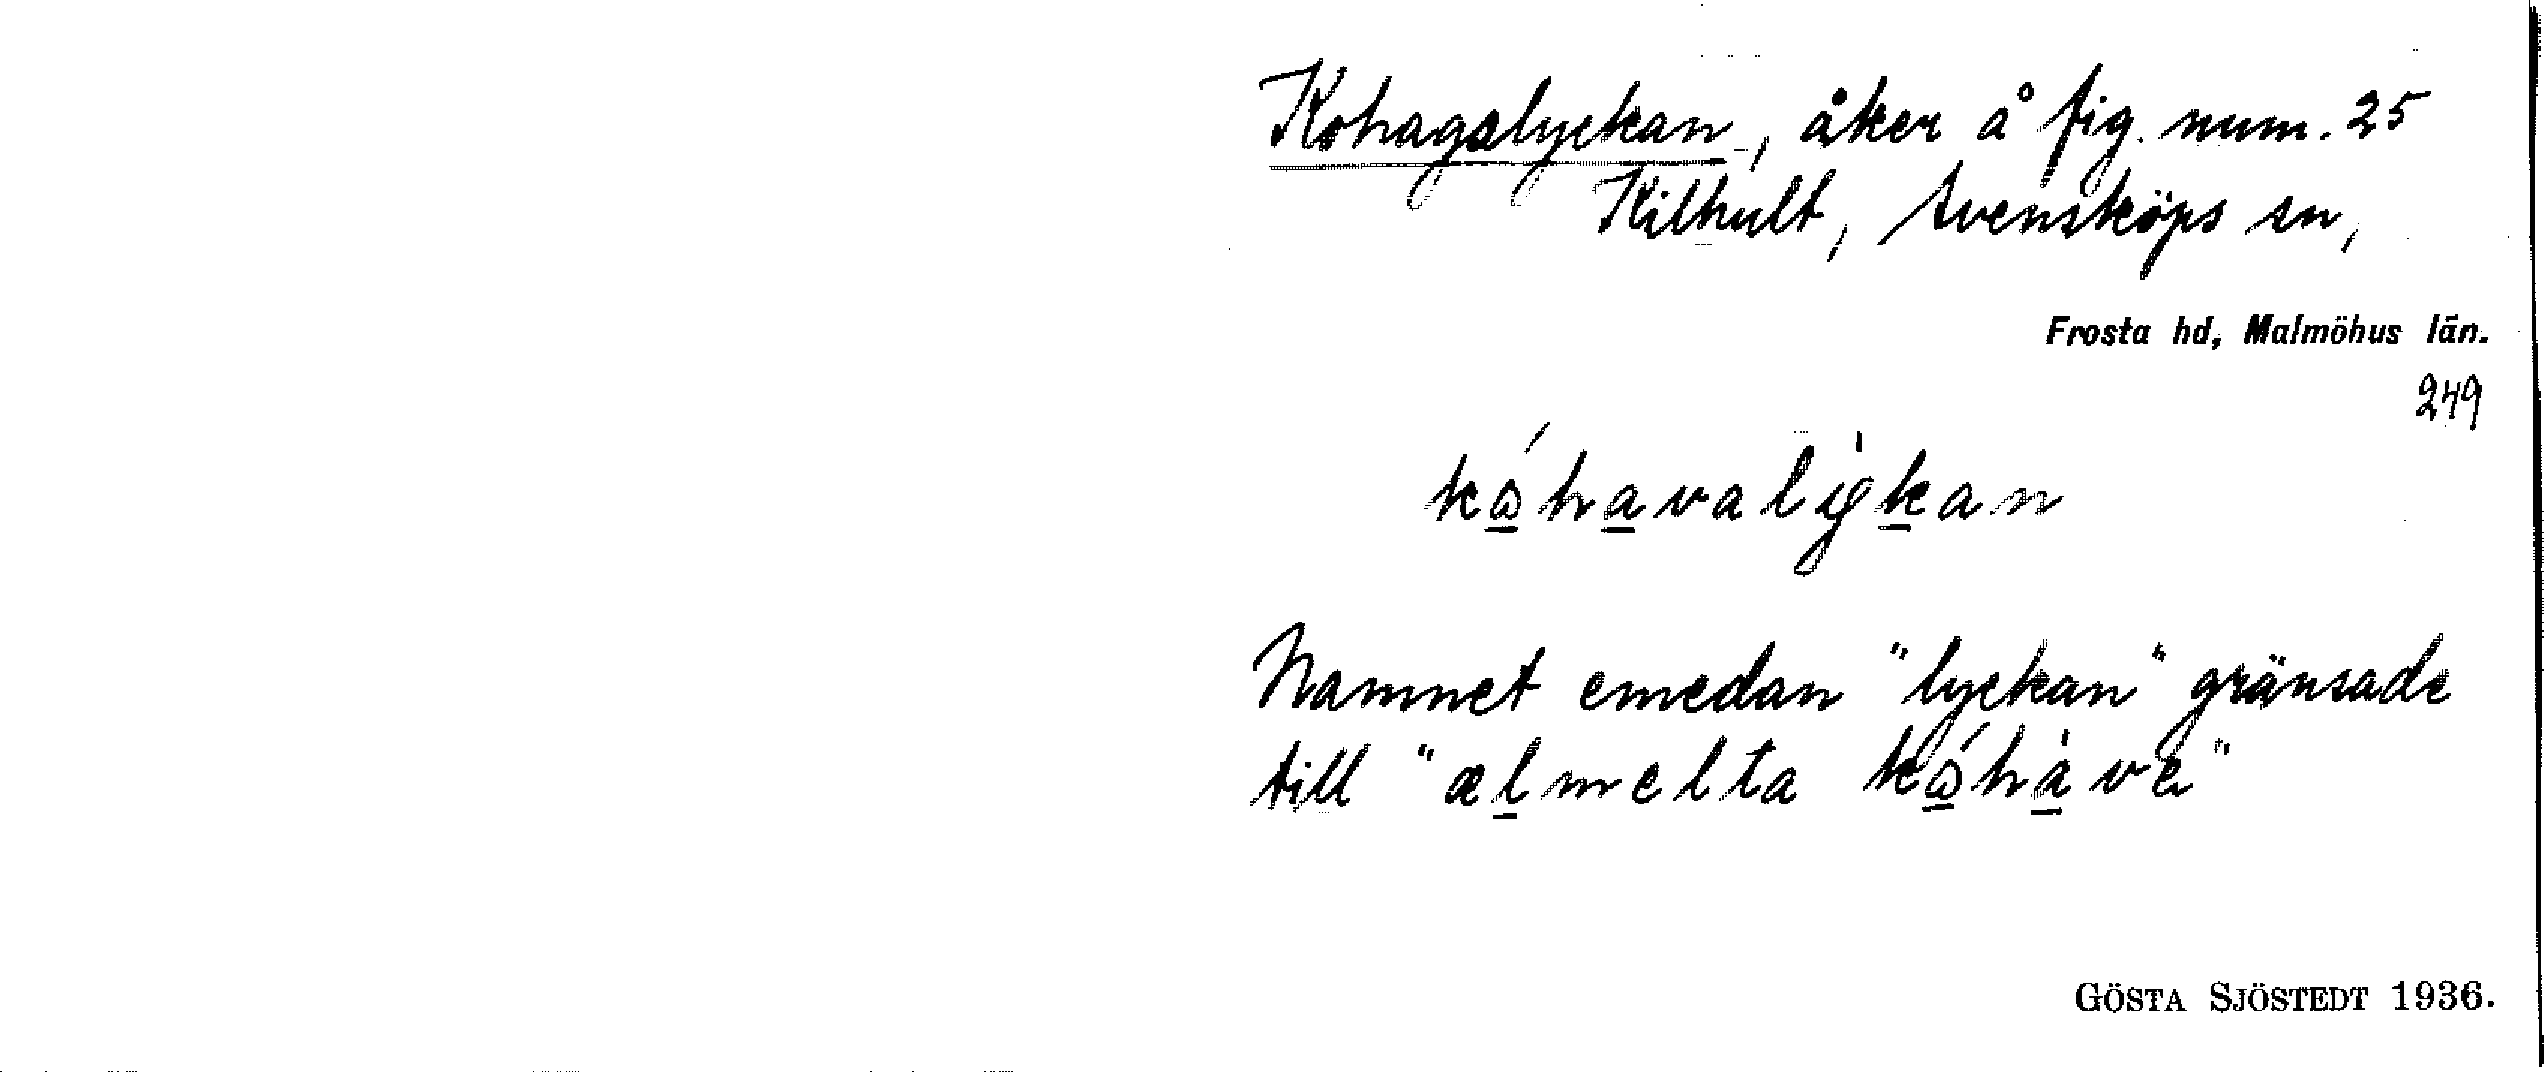 Kohagslyckan, åker å fig. num. 25
Kilhult, Svensköps sn,
Frosta hd, Malmöhus län.
249
Namnet emedan "lyckan" gränsade
till "ælmelta
GÖSTA SJÖSTEDT 1936.